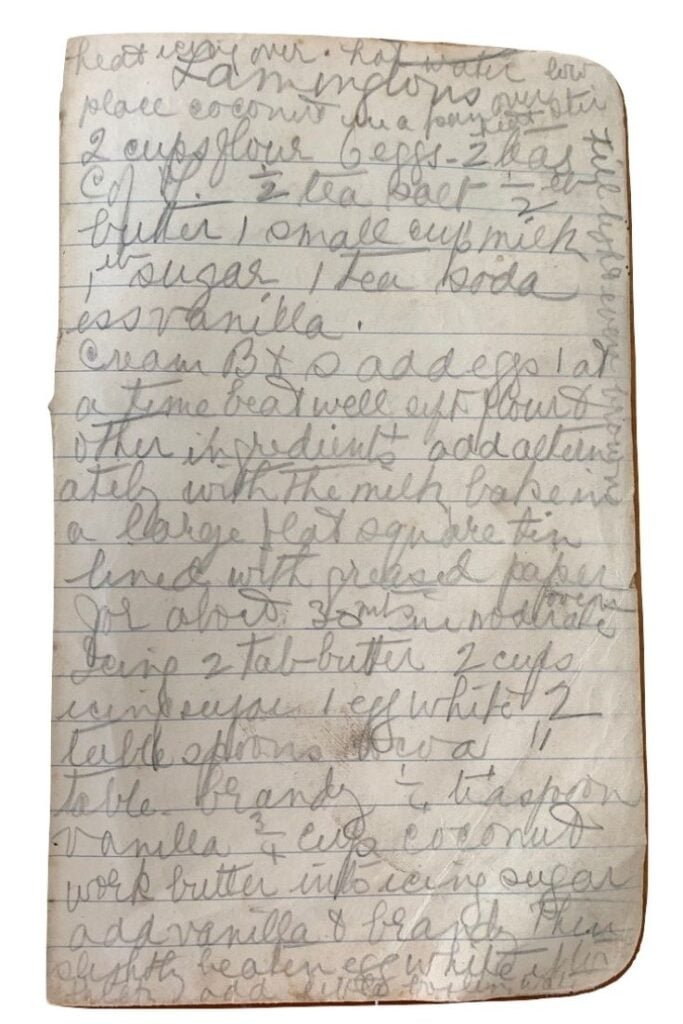 heat icing over hot water low
Lamingtons
place coconut in a pan over stir
heat
till light even brown
2 cups flour 6 eggs - 2 teas
C of T. ½ tea salt ½ lb
butter 1 small cup milk
1 lb sugar 1 tea soda
ess vanilla.
Cream B & S add eggs 1 at
a time beat well sift flour &
other ingredients add altern
ately with the milk bake in
a large flat square tin
lined with greased paper
for about 30 mts in moderate
oven
Icing 2 tab butter 2 cups
icing sugar 1 egg white 2
tablespoons cocoa "
table- brandy ¼ teaspoon
vanilla ¾ cup coconut
work butter into icing sugar
add vanilla & brandy then
slightly beaten egg white
add little